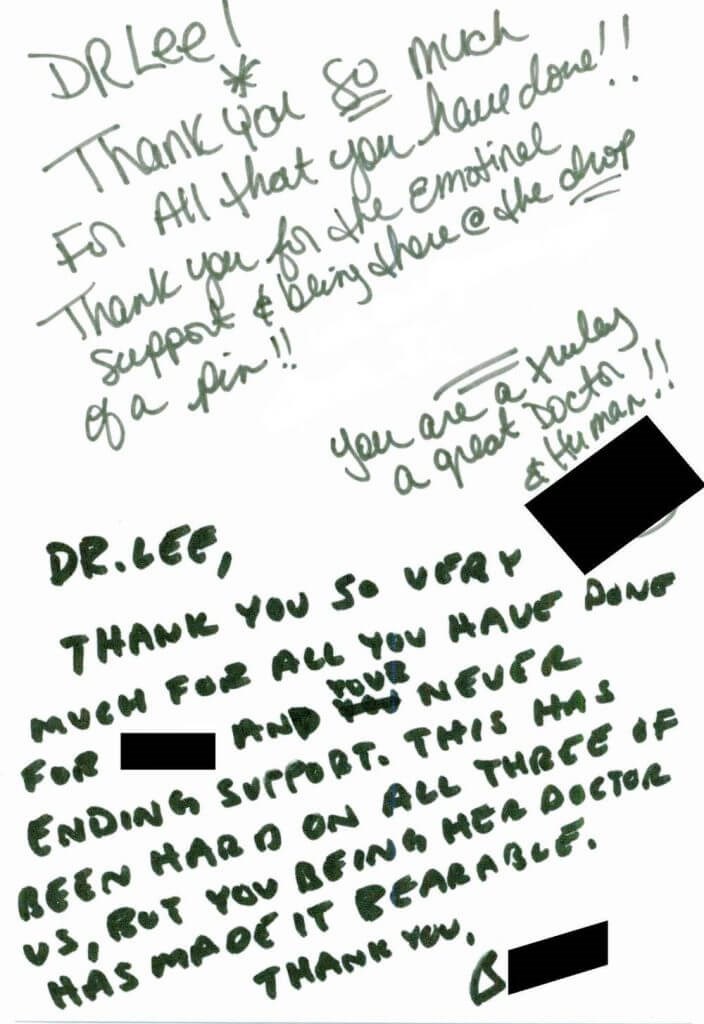 DR Lee!
Thank you SO much
For All that you have done!!
Thank you for the Emotinel
support & being there @ the drop
of a pin!!
you are a truley
a great Doctor
& Human!!
DR. LEE,
THANK YOU SO VERY
MUCH FOR ALL YOU HAVE DONE
FOR AND YOUR NEVER
ENDING SUPPORT. THIS HAS
BEEN HARD ON ALL THREE OF
US, BUT YOU BEING HER DOCTOR
HAS MADE IT BEARABLE.
THANK YOU.
B